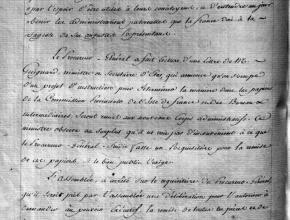 par l'espoir d'être utile à leurs concitoyens, et d'entendre un jour
bénir les administrations paternelles que la france doit à la
sagesse de son auguste Représentant.
Le Procureur-Général a fait lecture d'une Lettre de M.
Guignard, ministre et Secrétaire d'Etat, qui annonce qu'on s'occupe
d'un projet d'instruction pour déterminer la manière dont les papiers
de la Commission Provinciale de l'Isle de france et des Bureaux
intermédiaires seront remis aux nouveaux Corps administratifs. Ce
ministre observe au surplus qu'il ne voit pas d'inconvénient à ce que
le Procureur-Général-Sindic fasse les réquisitions pour la remise
de ces papiers le bien public l'exige.
L'Assemblée, a arrêté sur le réquisitoire du Procureur-Général,
qu'il seroit pris par l'assemblée une délibération pour l'autoriser à
demander au pouvoir exécutif la remise de toutes les pièces et des